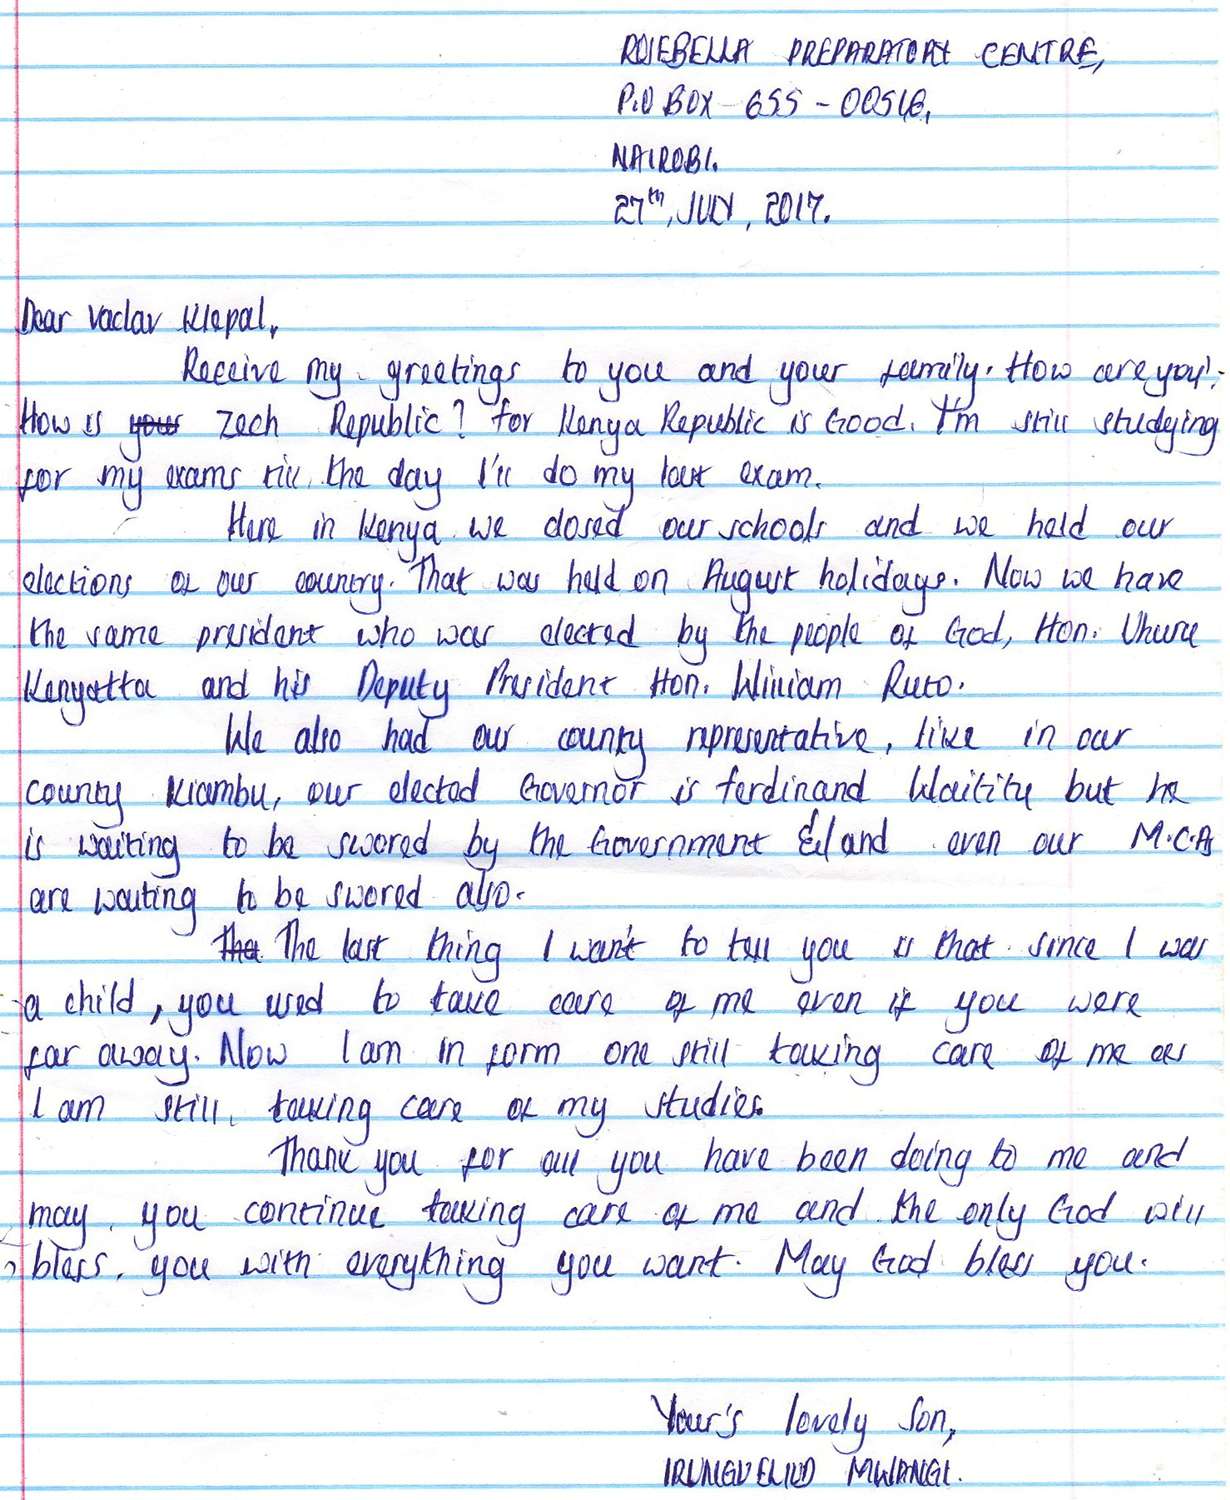 ROSEBELLA PREPARATORY CENTRE,
P.O BOX - 655 - 00516,
NAIROBI.
27th, JULY, 2017.
Dear Vaclav Klepal,
Receive my greetings to you and your family. How are you?
How is your Zech Republic? For Kenya Republic is Good. I'm still studying
for my exams till the day I'll do my last exam.
Here in Kenya we closed our schools and we held our
elections of our country. That was held on August holidays. Now we have
the same president who was elected by the people of God, Hon. Uhuru
Kenyatta and his Deputy President Hon. William Ruto.
We also had our county representative, like in our
county Kiambu, our elected Governor is Ferdinand Waititu but he
is waiting to be swored by the Government and even our M.C.A
are waiting to be swored also.
The The last thing I want to tell you is that since I was
a child, you used to take care of me even if you were
far away. Now I am in form one still taking care of me as
I am still taking care of my studies.
Thank you for all you have been doing to me and
may you continue taking care of me and the only God will
bless you with everything you want. May God bless you.
Your's lovely Son,
IRUNGU ELIUD MWANGI.